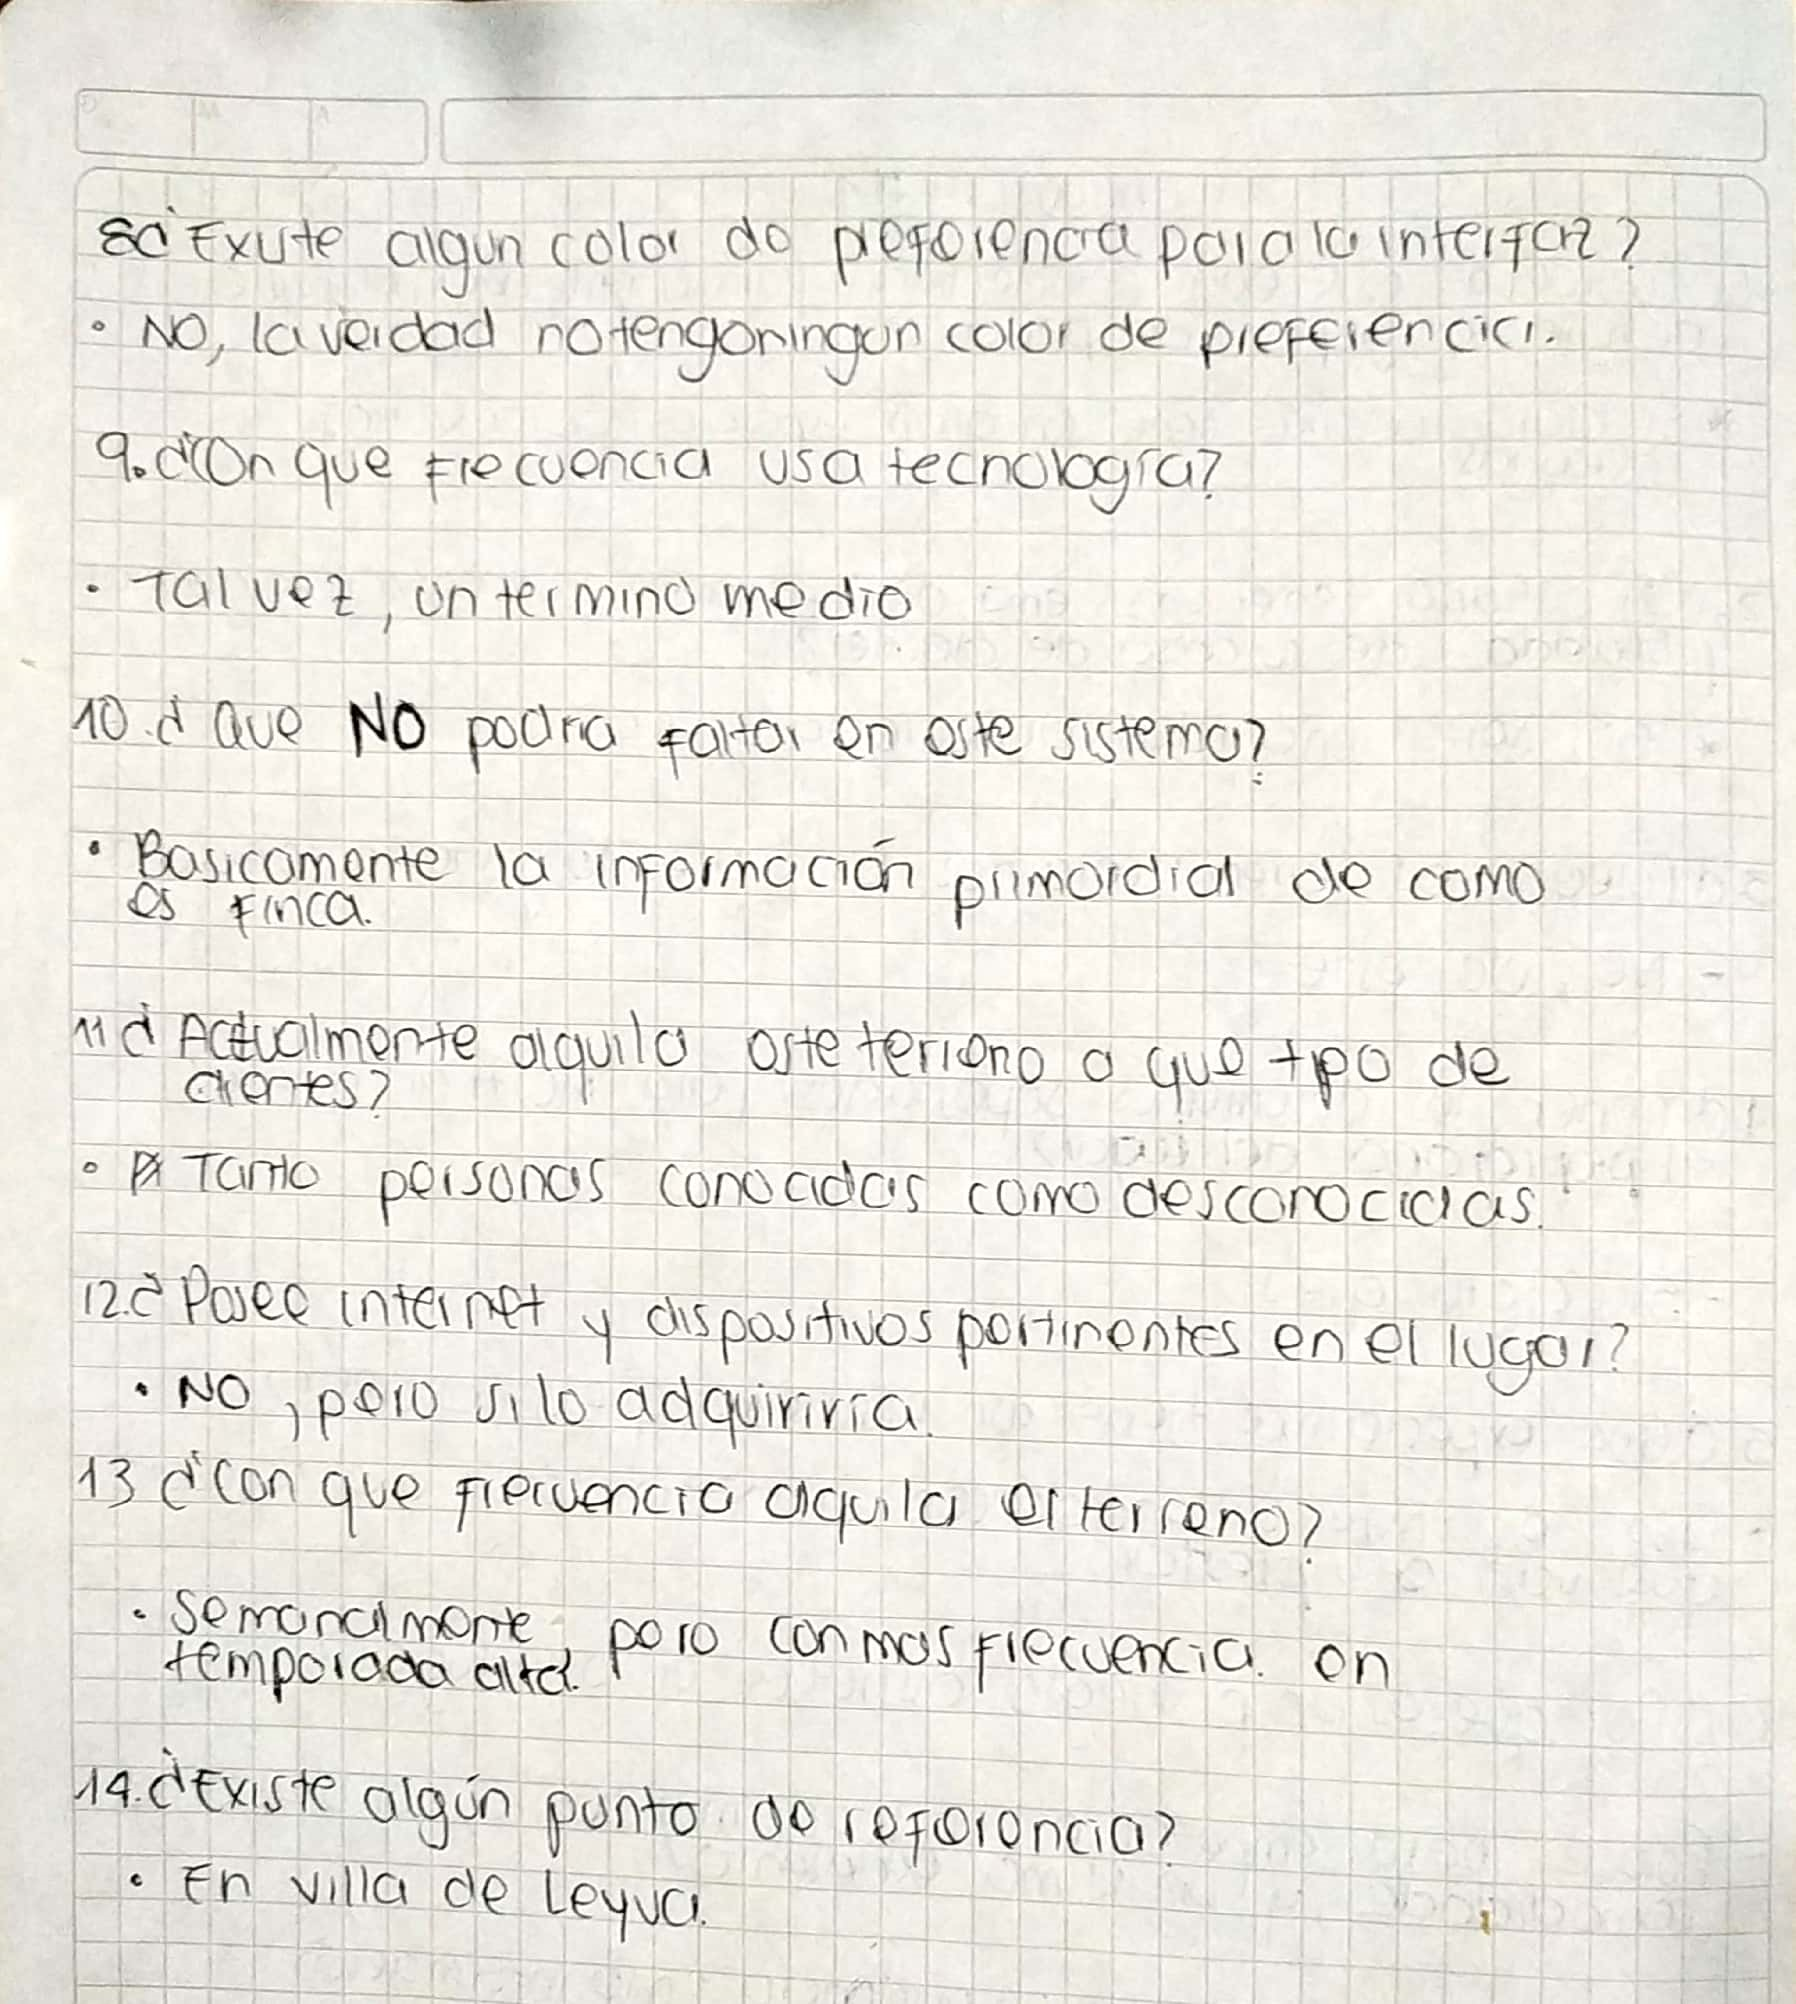 8 ¿Existe algun color de preferencia para la interfaz?
• NO, la verdad no tengo ningun color de preferencia.
9. ¿Con que frecuencia usa tecnología?
• Tal vez, un termino medio
10. ¿Que NO podria faltar en este sistema?
• Basicamente la información primordial de como
es finca.
11 ¿Actualmente alquila este terreno a que tipo de
clientes?
• Tanto personas conocidas como desconocidas.
12. ¿Posee internet y dispositivos pertinentes en el lugar?
• NO, pero si lo adquiriría.
13 ¿con que frecuencia alquila el terreno?
• Semanalmente, pero con mas frecuencia. en
temporada alta.
14. ¿Existe algún punto de referencia?
• En villa de Leyva.